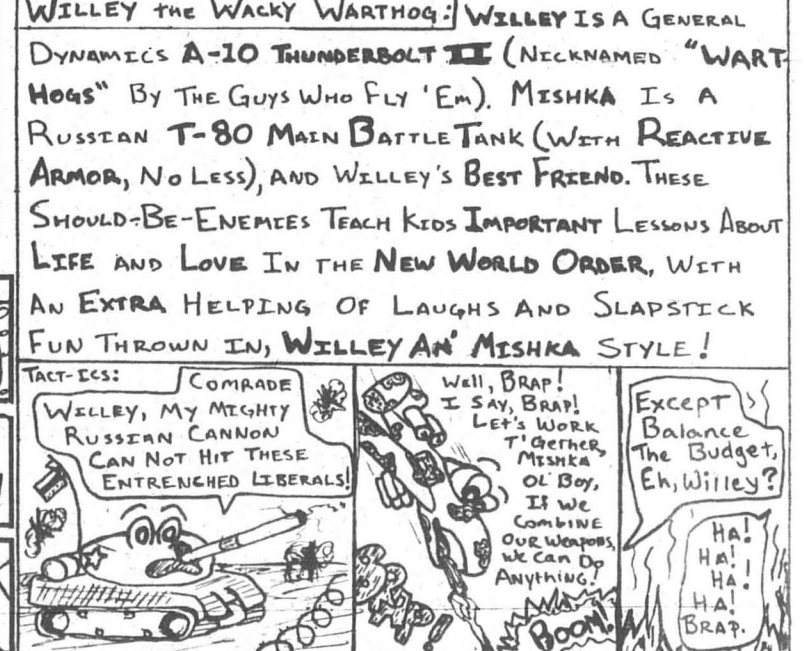 WILLEY the WACKY WARTHOG: WILLEY IS A GENERAL
DYNAMICS A-10 THUNDERBOLT II (NICKNAMED "WART-
HOGS" BY THE GUYS WHO FLY 'EM). MISHKA IS A
RUSSIAN T-80 MAIN BATTLE TANK (WITH REACTIVE
ARMOR, NO LESS), AND WILLEY'S BEST FRIEND. THESE
SHOULD-BE-ENEMIES TEACH KIDS IMPORTANT LESSONS ABOUT
LIFE AND LOVE IN THE NEW WORLD ORDER, WITH
AN EXTRA HELPING OF LAUGHS AND SLAPSTICK
FUN THROWN IN, WILLEY AN' MISHKA STYLE!
TACT-ICS:
COMRADE
WILLEY, MY MIGHTY
RUSSIAN CANNON
CAN NOT HIT THESE
ENTRENCHED LIBERALS!
Well, BRAP!
I SAY, BRAP!
LET'S WORK
T'GETHER,
MISHKA
OL' BOY,
IF WE
COMBINE
OUR WEAPONS,
WE CAN DO
ANYTHING!
BOOM!
Except
Balance
The Budget,
Eh, Willey?
HA!
HA!
HA!
HA!
BRAP.